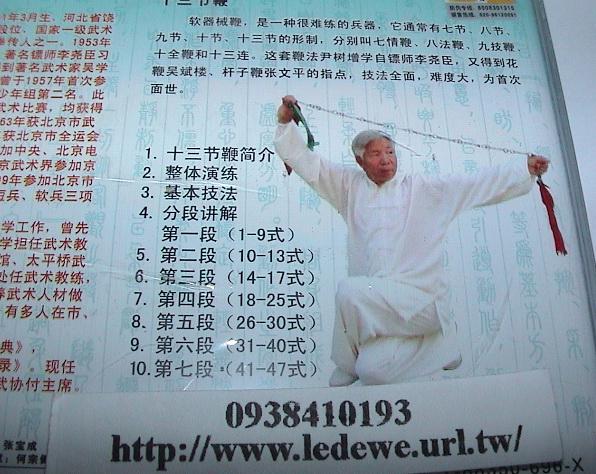 十三节鞭
软器械鞭，是一种很难练的兵器，它通常有七节、八节、
九节、十节、十三节的形制，分别叫七情鞭、八法鞭、九技鞭、
十全鞭和十三连。这套鞭法尹树增学自镖师李尧臣，又得到花
鞭吴斌楼、杆子鞭张文平的指点，技法全面，难度大，为首次
面世。
1年3月生，河北省饶
段位，国家一级武术
1953年
著名镖师李尧臣习
到著名武术家吴学
曾于1957年首次参
少年组第二名。此
武术比赛，均获得
63年获北京市武
获北京市全运会
加中央、北京电
京武术界参加京
99年参加北京市
短兵、软兵三项
学工作，曾先
学担任武术教
馆、太平桥武
处任武术教练，
养武术人材做
有多人在市、
典》，
录》。现任
武协付主席。
张宝成
1. 十三节鞭简介
2. 整体演练
3. 基本技法
4. 分段讲解
第一段（1-9式）
5. 第二段（10-13式）
6. 第三段（14-17式）
7. 第四段（18-25式）
8. 第五段（26-30式）
9. 第六段（31-40式）
10.第七段（41-47式）
0938410193
http://www.ledewe.url.tw/